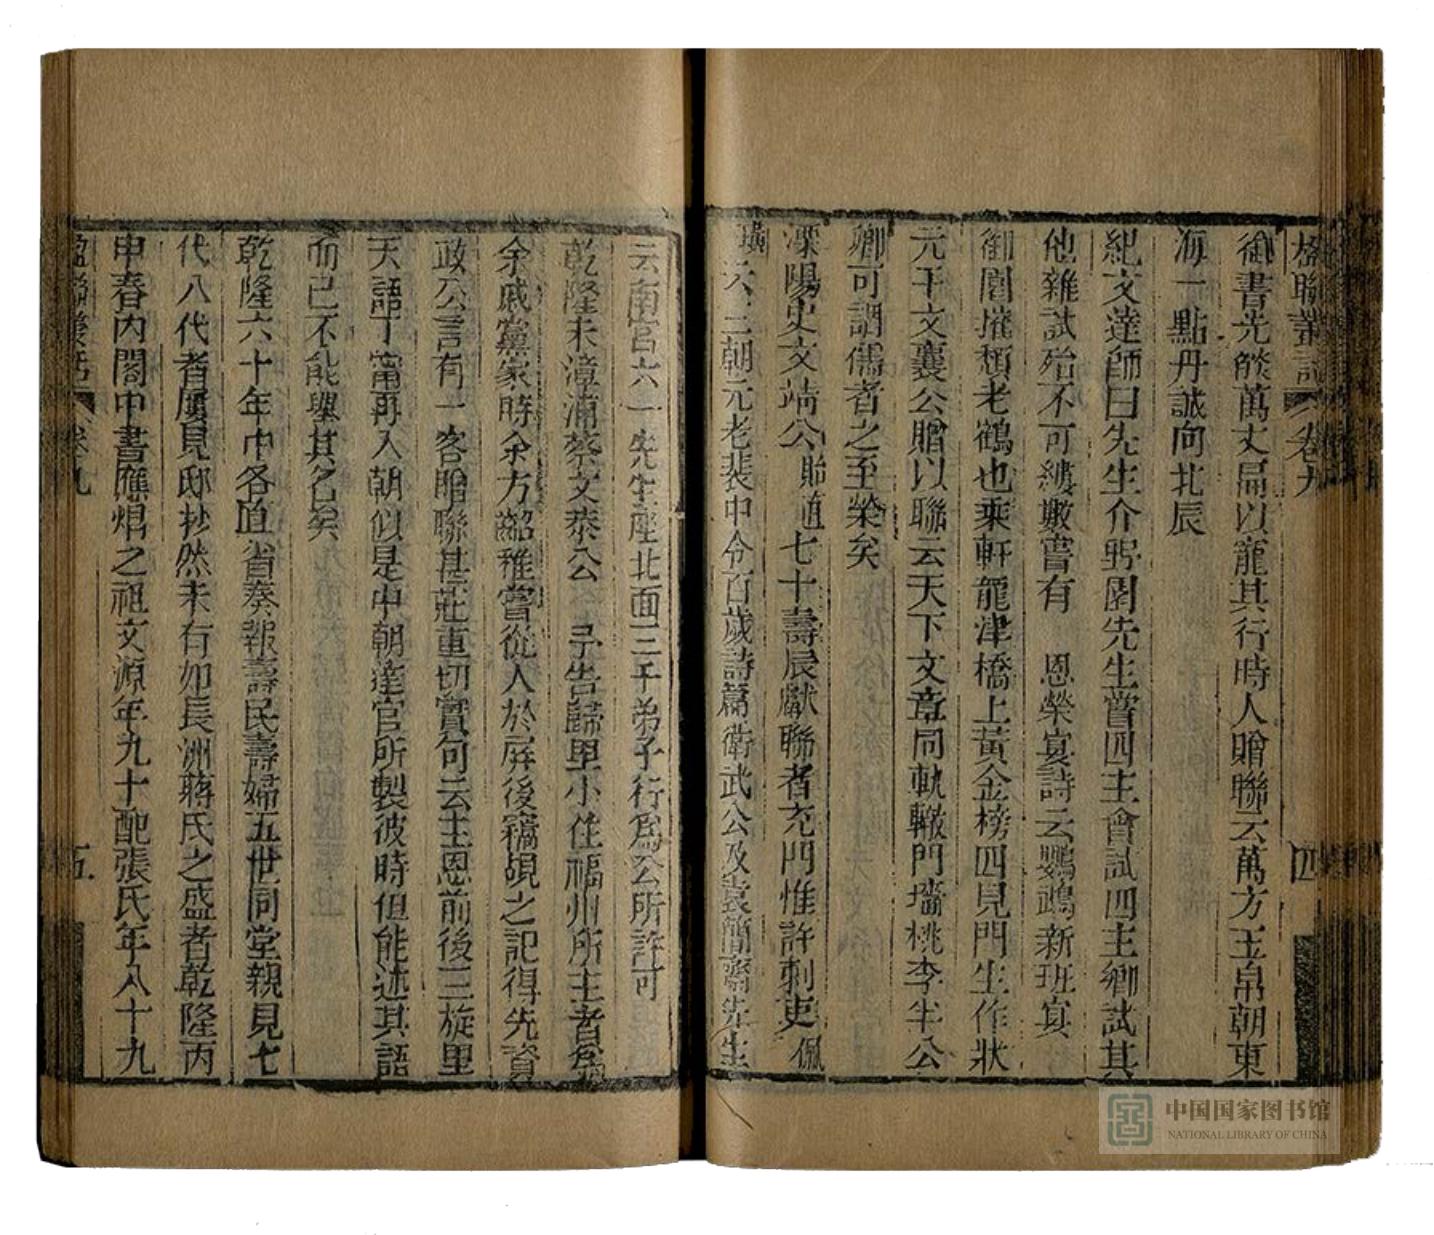 楹聯叢話 卷九 四
御書光燄萬丈扁以寵其行時人贈聯云萬方玉帛朝東
海一點丹誠向北辰
紀文達師曰先生介野園先生嘗四主會試四主鄉試其
他雜試殆不可縷數嘗有 恩榮宴詩云鸚鵡新班宴
御園摧頽老鶴也乘軒龍津橋上黃金榜四見門生作狀
元于文襄公贈以聯云天下文章同軌轍門墻桃李半公
卿可謂儒者之至榮矣
溧陽史文靖公貽直七十壽辰獻聯者充門惟許刺史佩
璜云三朝元老裴中令百歲詩篇衛武公及袁簡齋先生
云南宮六一先生座北面三千弟子行爲公所許可
乾隆末漳浦蔡文恭公 予告歸里小住福州所主者爲
余戚黨家時余方韶稚嘗從人於屏後竊覘之記得先資
政公言有一客贈聯甚莊重切實句云主恩前後三旋里
天語丁寧再入朝似是中朝達官所製彼時但能述其語
而已不能舉其名矣
乾隆六十年中各直省奏報壽民壽婦五世同堂親見七
代八代者屢見邸抄然未有如長洲蔣氏之盛者乾隆丙
申春內閣中書應焻之祖文源年九十配張氏年八十九
楹聯叢話 卷九 五
中国国家图书馆
NATIONAL LIBRARY OF CHINA